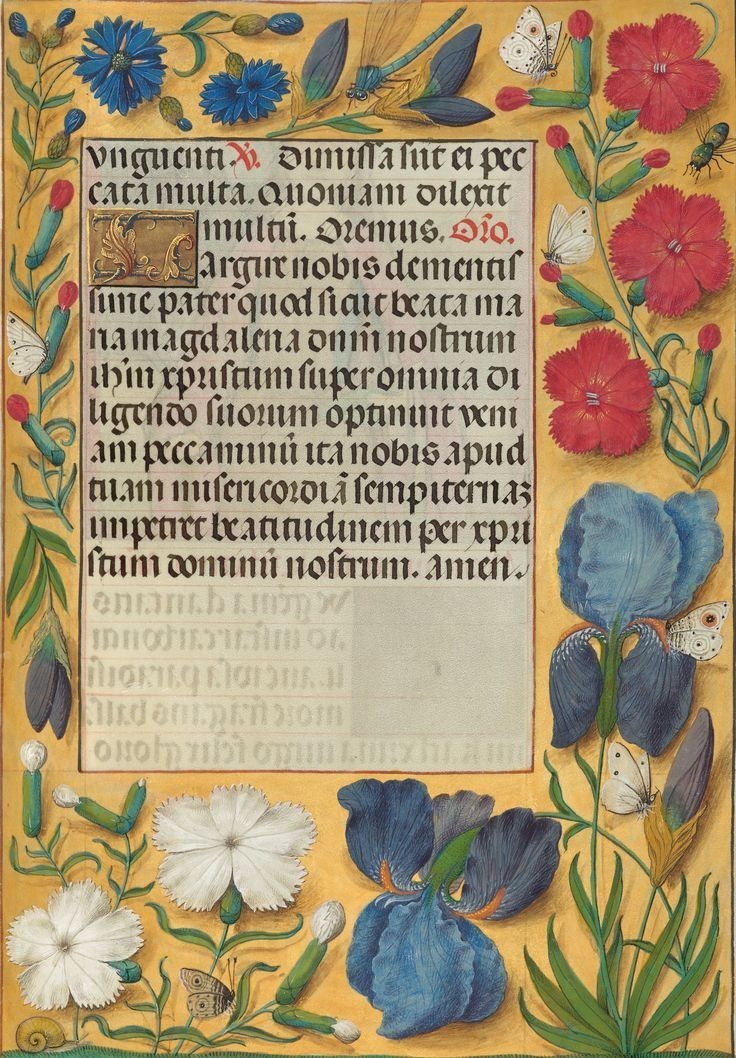 vnguenti. ℣. Dimissa sūt ei pec
cata multa. Quoniam dilexit
multū. Oremus. Orō.
Largire nobis clementis
sime pater quod sicut beata ma
ria magdalena dnm̄ nostrum
ihm̄ xpristum super omnia di
ligendo suorum optinuit veni
am peccaminū ita nobis apud
tuam misericordiā sempiternaꝫ
impetret beatitudinem per xpri
stum dominū nostrum. amen.